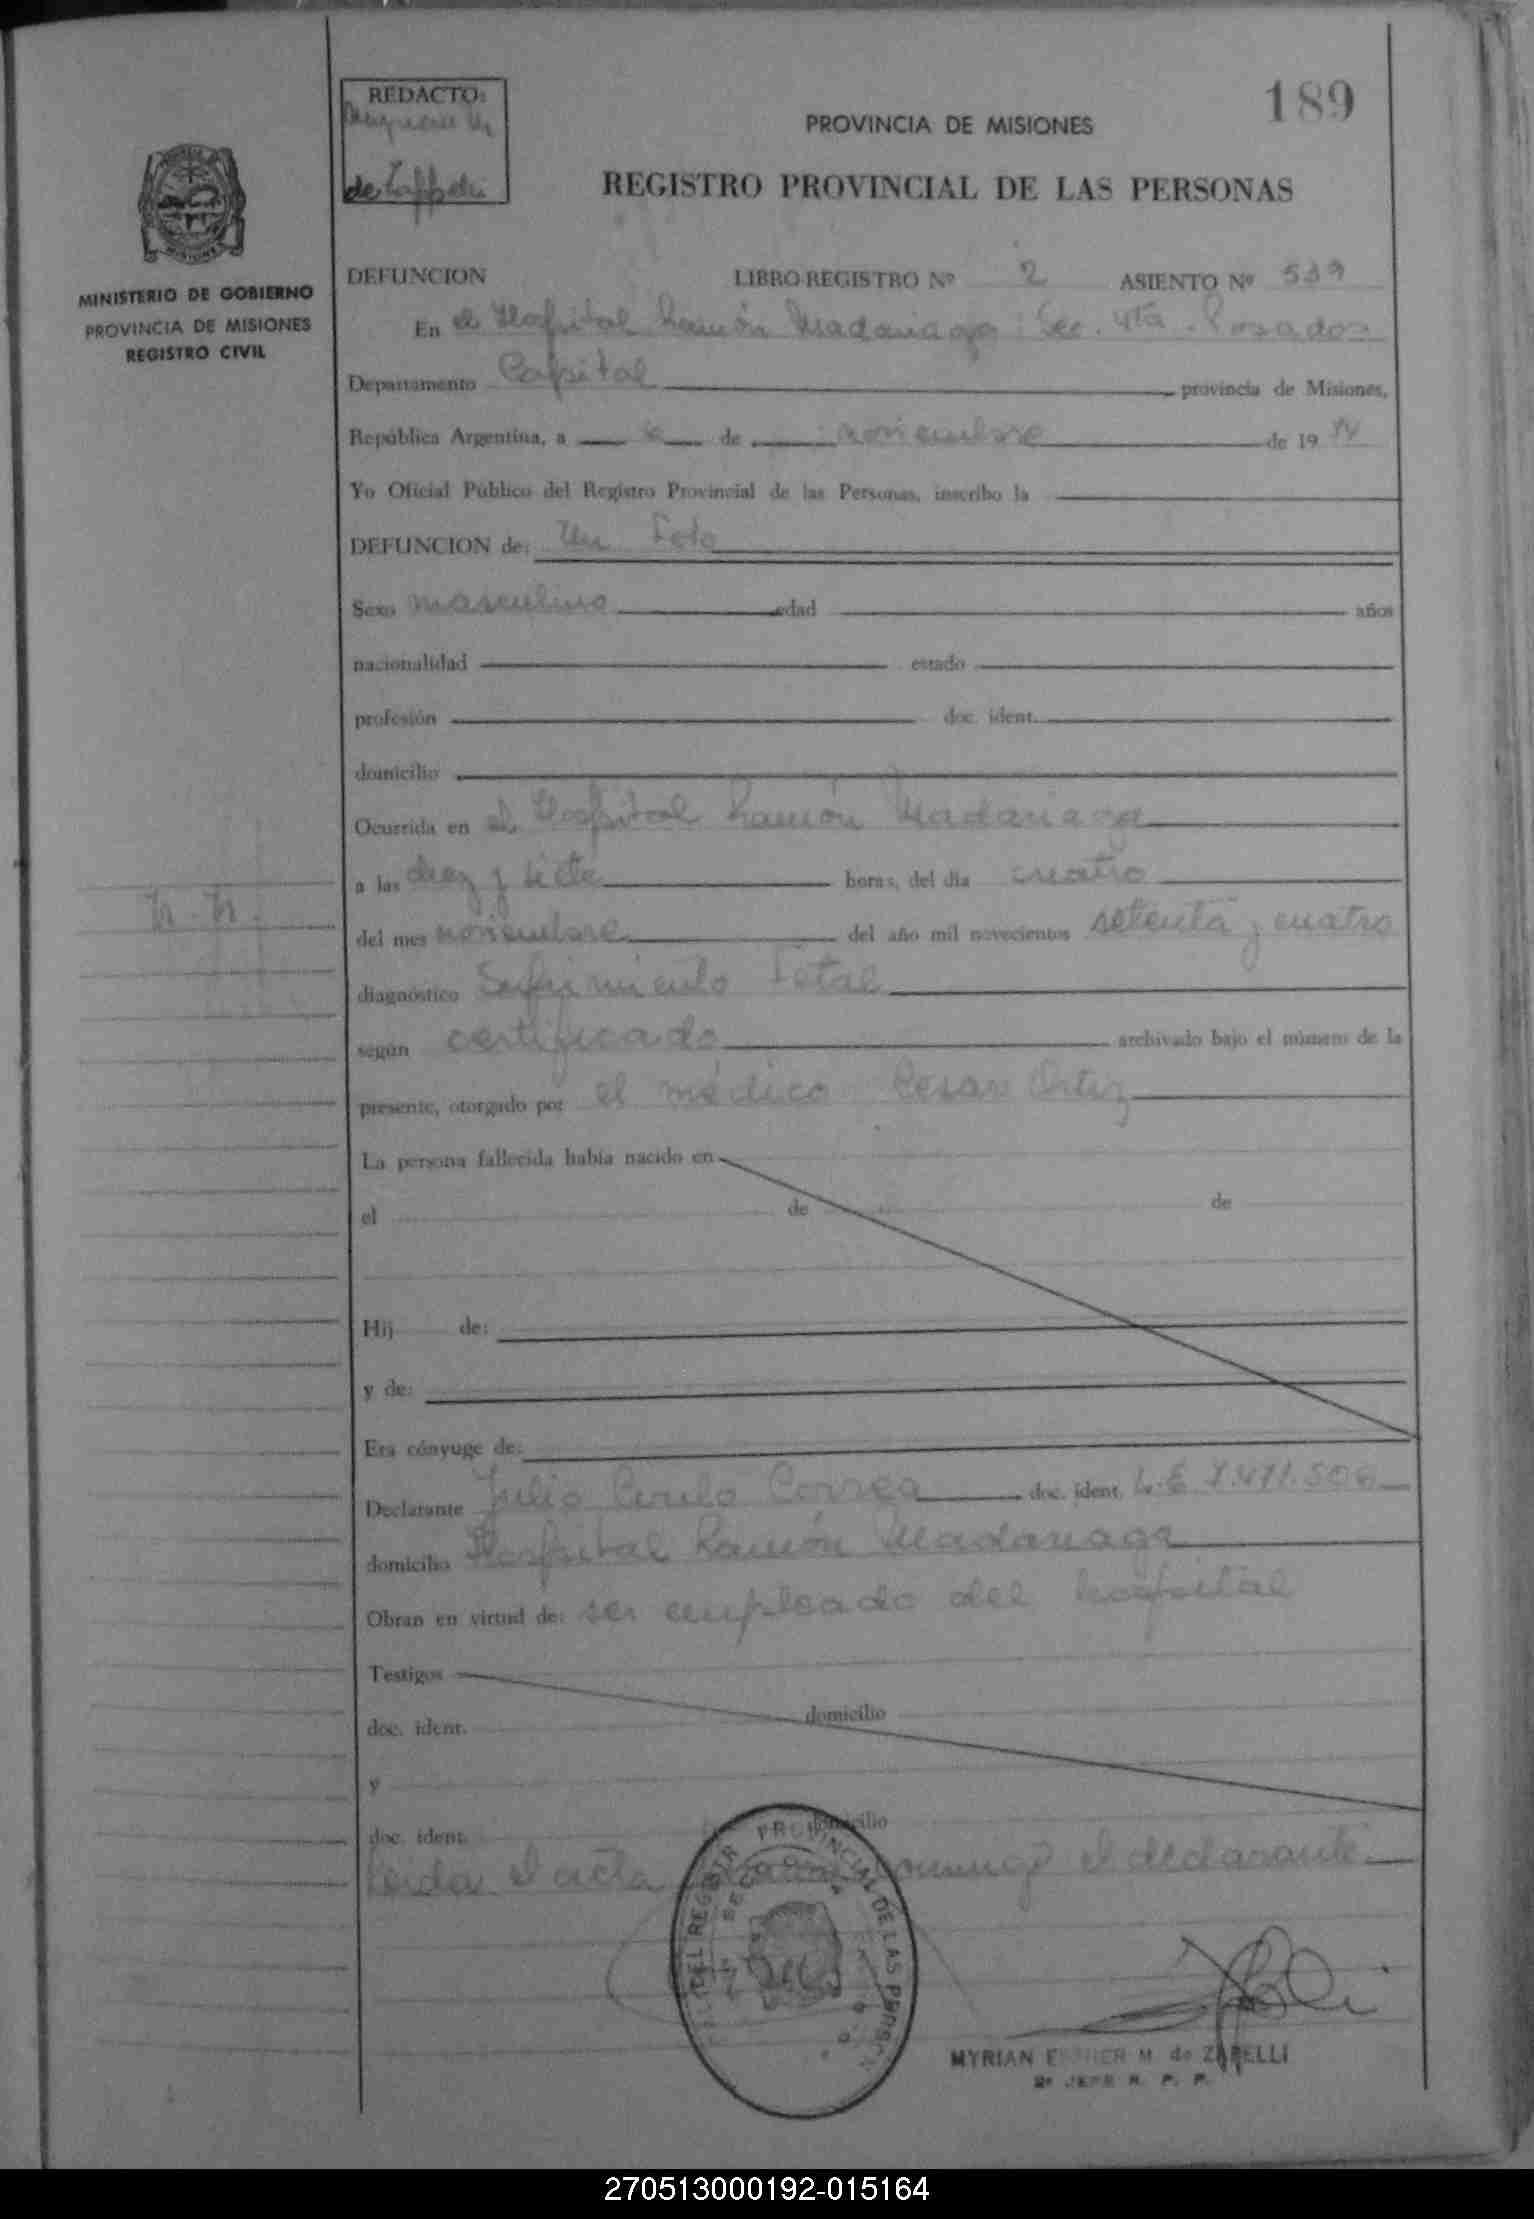 189
REDACTO:
de Zappelli
PROVINCIA DE MISIONES
REGISTRO PROVINCIAL DE LAS PERSONAS
MINISTERIO DE GOBIERNO
PROVINCIA DE MISIONES
REGISTRO CIVIL
DEFUNCION LIBRO REGISTRO Nº 2 ASIENTO Nº 539
En el Hospital Ramón Madariaga Sec. 4ta. Posadas
Departamento Capital provincia de Misiones,
República Argentina, a de noviembre de 19 74
Yo Oficial Público del Registro Provincial de las Personas, inscribo la
DEFUNCION de: Un Feto
Sexo masculino edad años
nacionalidad estado
profesión doc. ident.
domicilio
Ocurrida en el Hospital Ramón Madariaga
a las diez y siete horas, del día cuatro
N. N.
del mes noviembre del año mil novecientos setenta y cuatro
diagnóstico Sufrimiento Fetal
según certificado archivado bajo el número de la
presente, otorgado por el médico Cesar Ortiz
La persona fallecida había nacido en
el de de
Hij de:
y de:
Era cónyuge de:
Declarante Julio Correa doc. ident. L.E 7.471.506
domicilio Hospital Ramón Madariaga
Obran en virtud de: ser empleado del hospital
Testigos
doc. ident. domicilio
y
doc. ident. domicilio
Leida el acta conmigo el declarante
DEL REGISTR PROVINCIAL DE LAS PERSON
MYRIAN ESTHER M. de ZAPELLI
2º JEFE R. P. P.
270513000192-015164